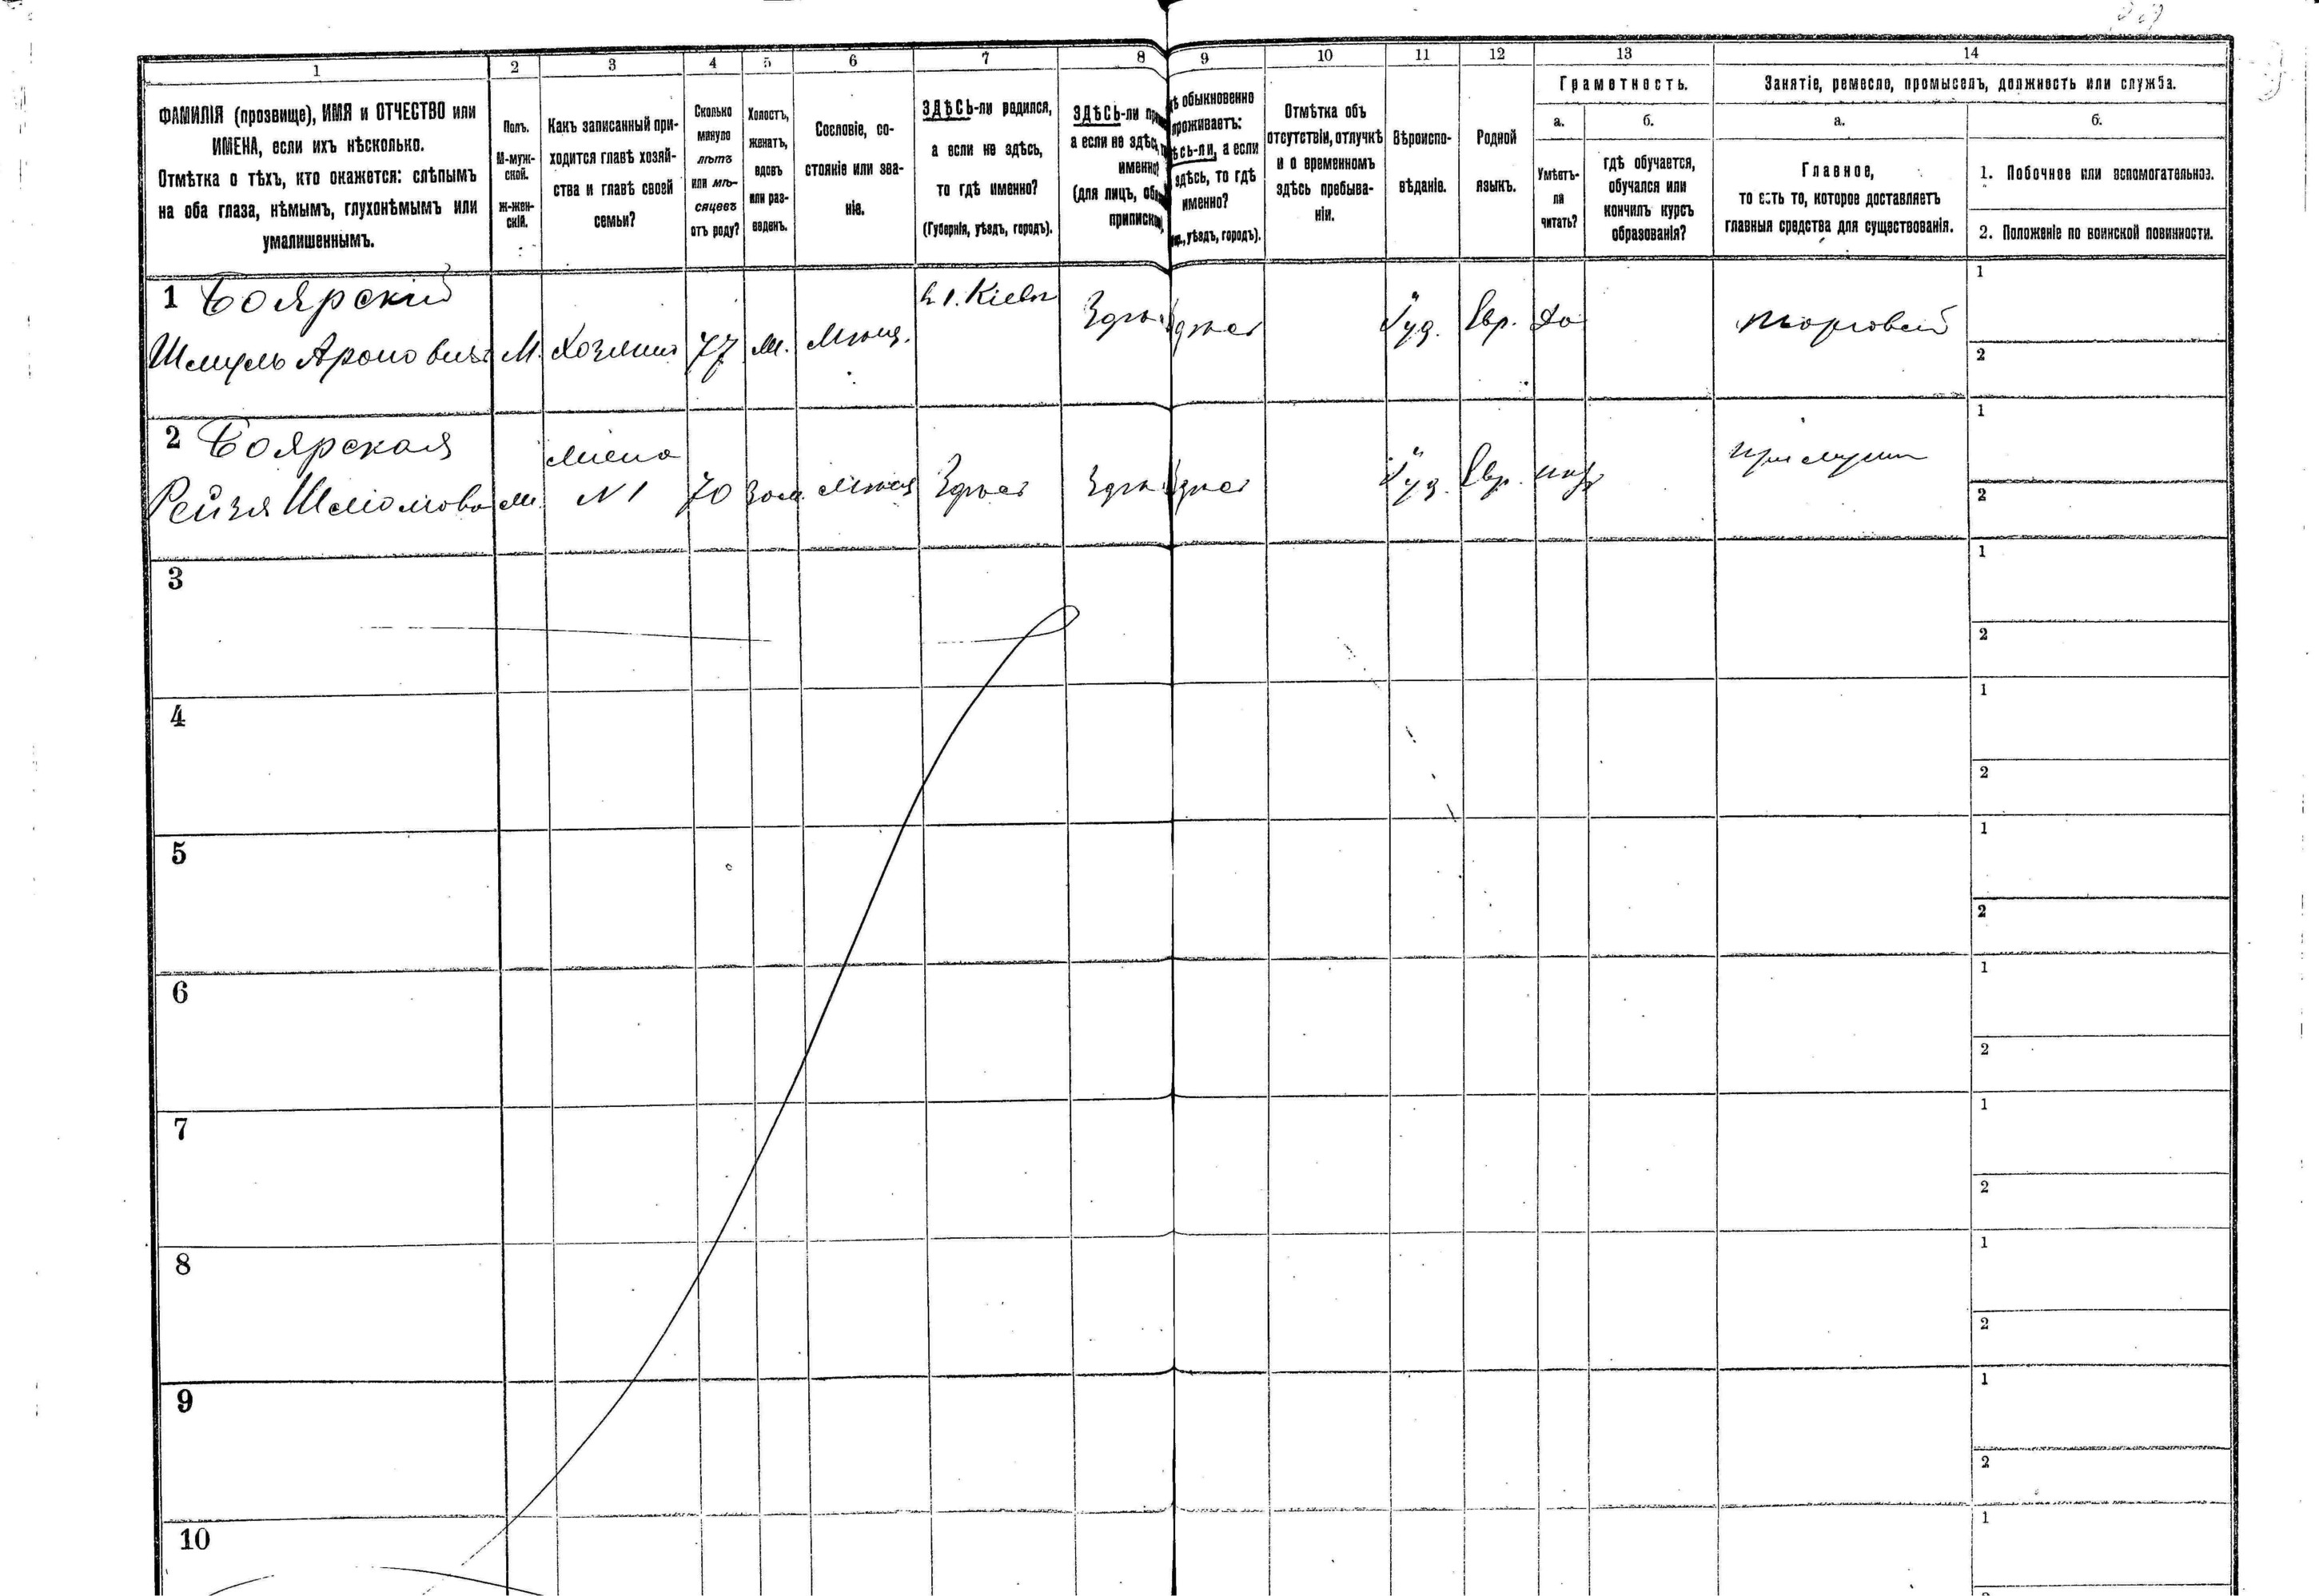 1
2
3
4
5
6
7
8
9
10
11
12
13
14
ФАМИЛІЯ (прозвище), ИМЯ и ОТЧЕСТВО или
ИМЕНА, если ихъ нѣсколько.
Отмѣтка о тѣхъ, кто окажется: слѣпымъ
на оба глаза, нѣмымъ, глухонѣмымъ или
умалишеннымъ.
Полъ.
М-муж-
ской.
ж-жен-
скій.
Какъ записанный при-
ходится главѣ хозяй-
ства и главѣ своей
семьи?
Сколько
минуло
лѣтъ
или мѣ-
сяцевъ
отъ роду?
Холостъ,
женатъ,
вдовъ
или раз-
веденъ.
Сословіе, со-
стояніе или зва-
ніе.
ЗДѢСЬ-ли родился,
а если не здѣсь,
то гдѣ именно?
(Губернія, уѣздъ, городъ).
ЗДѢСЬ-ли
а если не здѣсь,
именно?
(для лицъ,
обыкновенно
проживаетъ:
а если
здѣсь, то гдѣ
именно?
уѣздъ, городъ).
Отмѣтка объ
отсутствіи, отлучкѣ
и о временномъ
здѣсь пребыва-
ніи.
Вѣроиспо-
вѣданіе.
Родной
языкъ.
Грамотность.
а.
б.
Умѣетъ-
ли
читать?
гдѣ обучается,
обучался или
кончилъ курсъ
образованія?
Занятіе, ремесло, промыселъ, должность или служба.
а.
б.
Главное,
то есть то, которое доставляетъ
главныя средства для существованія.
1. Побочное или вспомогательное.
2. Положеніе по воинской повинности.
1 Боярскій
Шмуль Ароновичъ
М.
Хозяинъ
77
ж.
Мѣщ.
Кіевъ
Іуд.
Евр.
Да
торговый
1
2
2 Боярская
Рейзя Шліомова
ж.
жена
N 1
70
зам.
Здѣсь
Іуд.
Евр.
1
2
3
1
2
4
1
2
5
1
2
6
1
2
7
1
2
8
1
2
9
1
2
10
1